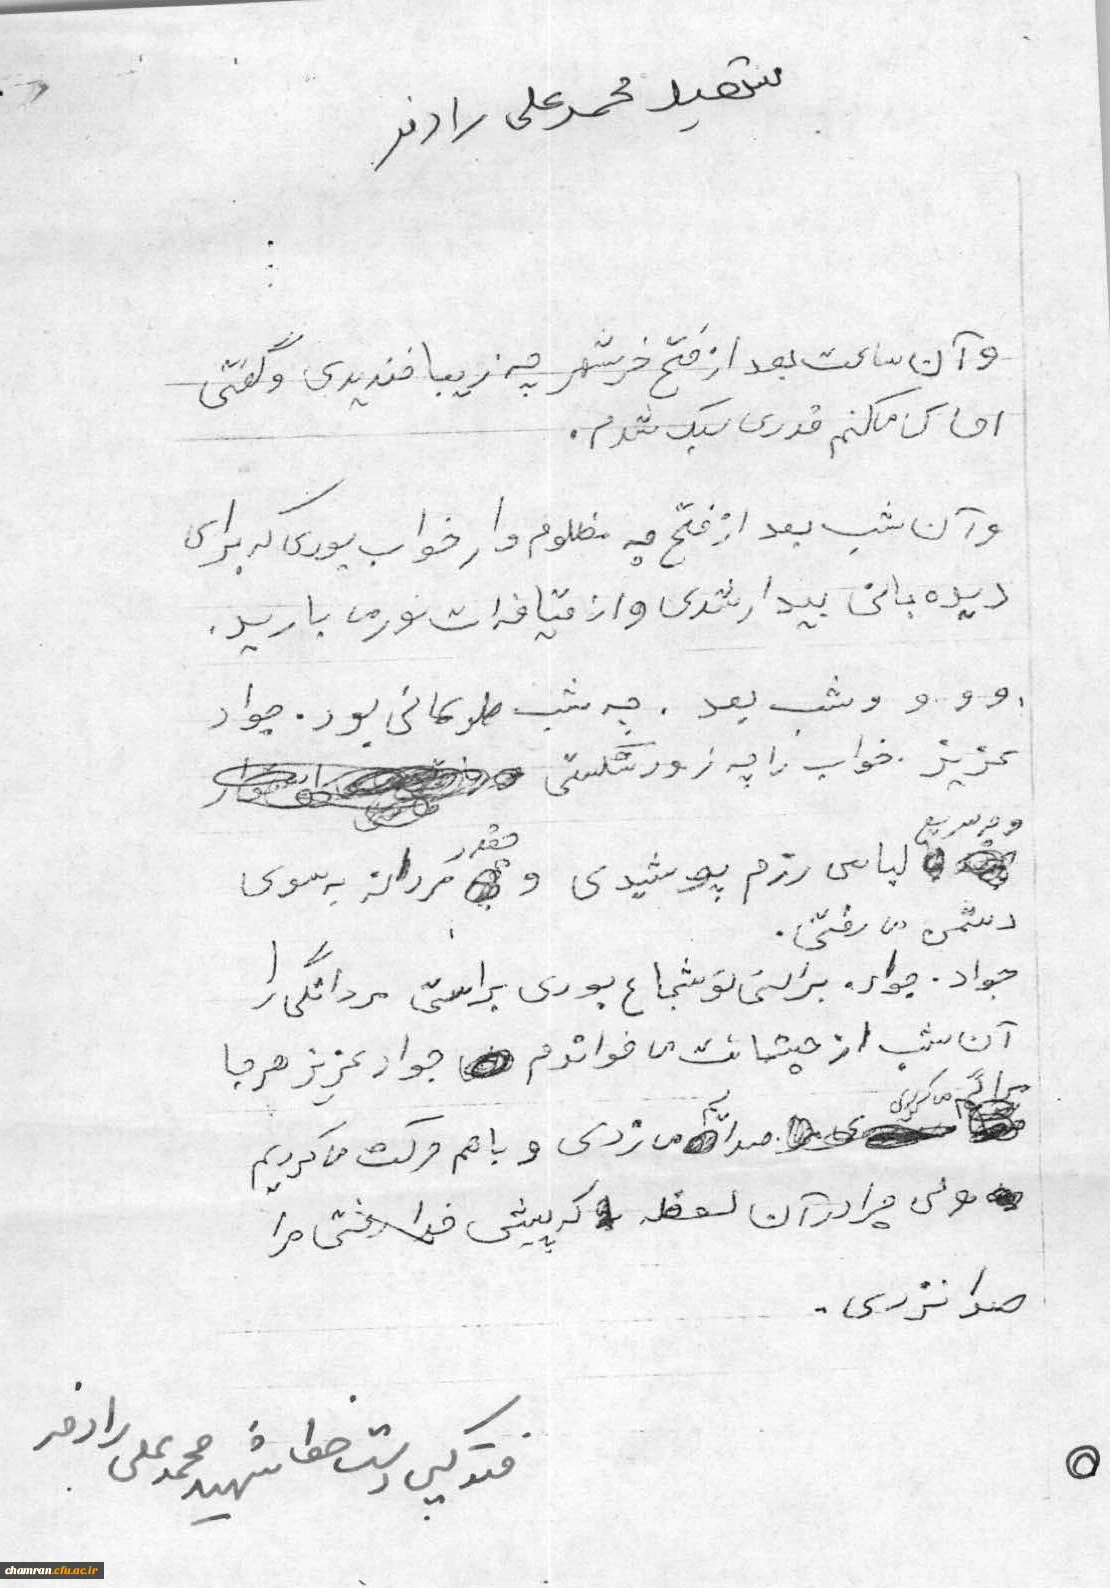 شهید محمدعلی رادفر
و آن ساعت بعد از فتح خرمشهر چه زیبا خندیدی و گفتی
می‌کنم قدری سبک شدم.
و آن شب بعد از فتح چه مظلوم وار خواب بودی که برای
دیده بانی بیدار شدی و از قیافه ات نور می بارید.
. و و و و شب بعد . چه شب طولانی بود. جواد
عزیز. خواب را چه زود شکستی
و چه سریع
لباس رزم پوشیدی و چقدر مردانه به سوی
دشمن می رفتی.
جواد. جواد. براستی تو شجاع بودی براستی مردانگی را
آن شب از چشمانت می خواندم جواد عزیز هر جا
می‌کردی
صدا می زدی و با هم حرکت می کردیم
ولی چرا در آن لحظه که پیش خدا رفتی مرا
صدا نزدی.
فتوکپی دست خط شهید محمدعلی رادفر
chamran.cfu.ac.ir